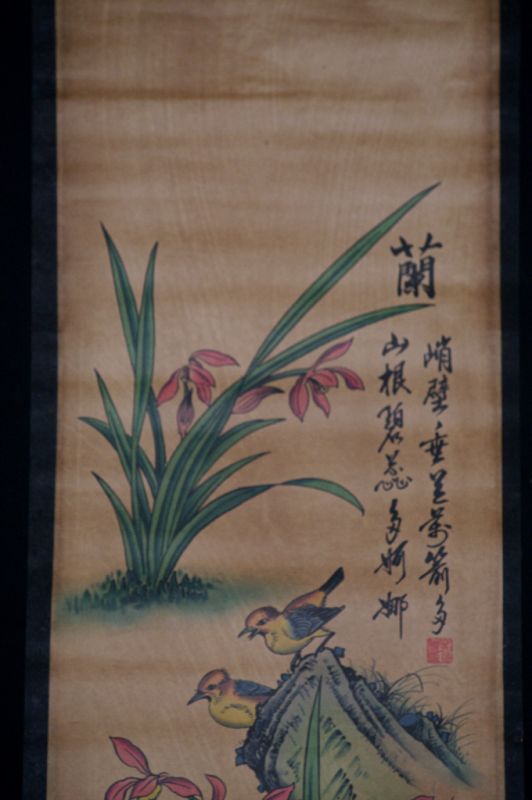 蘭
峭壁垂兰萬箭多
山根碧蕊多婀娜